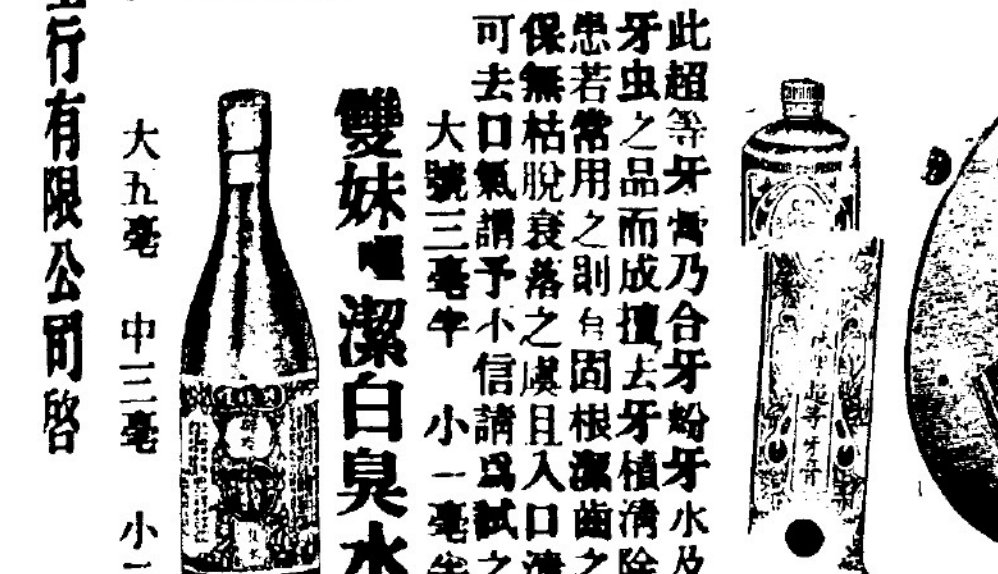 此超等牙膏乃合牙粉牙水及
牙虫之品而成擅去牙植清除
患若常用之則固根潔齒之
保無枯脫衰落之虞且入口清
可去口氣謂予不信請爲試之
大號三毫半 小一毫半
雙妹嚜潔白臭水
大五毫 中三毫 小一
行有限公司啓
超等牙膏